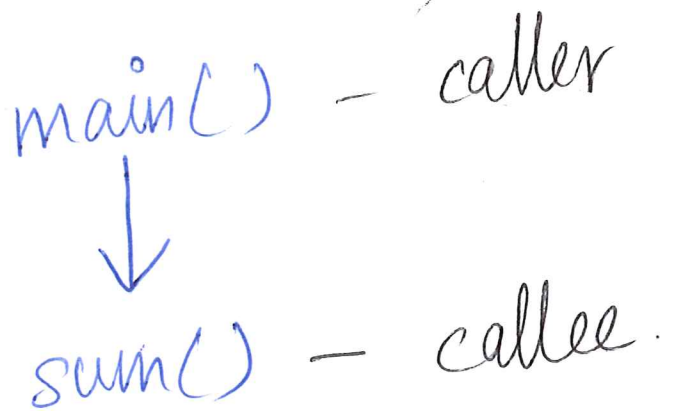 main() - caller
sum() - callee.